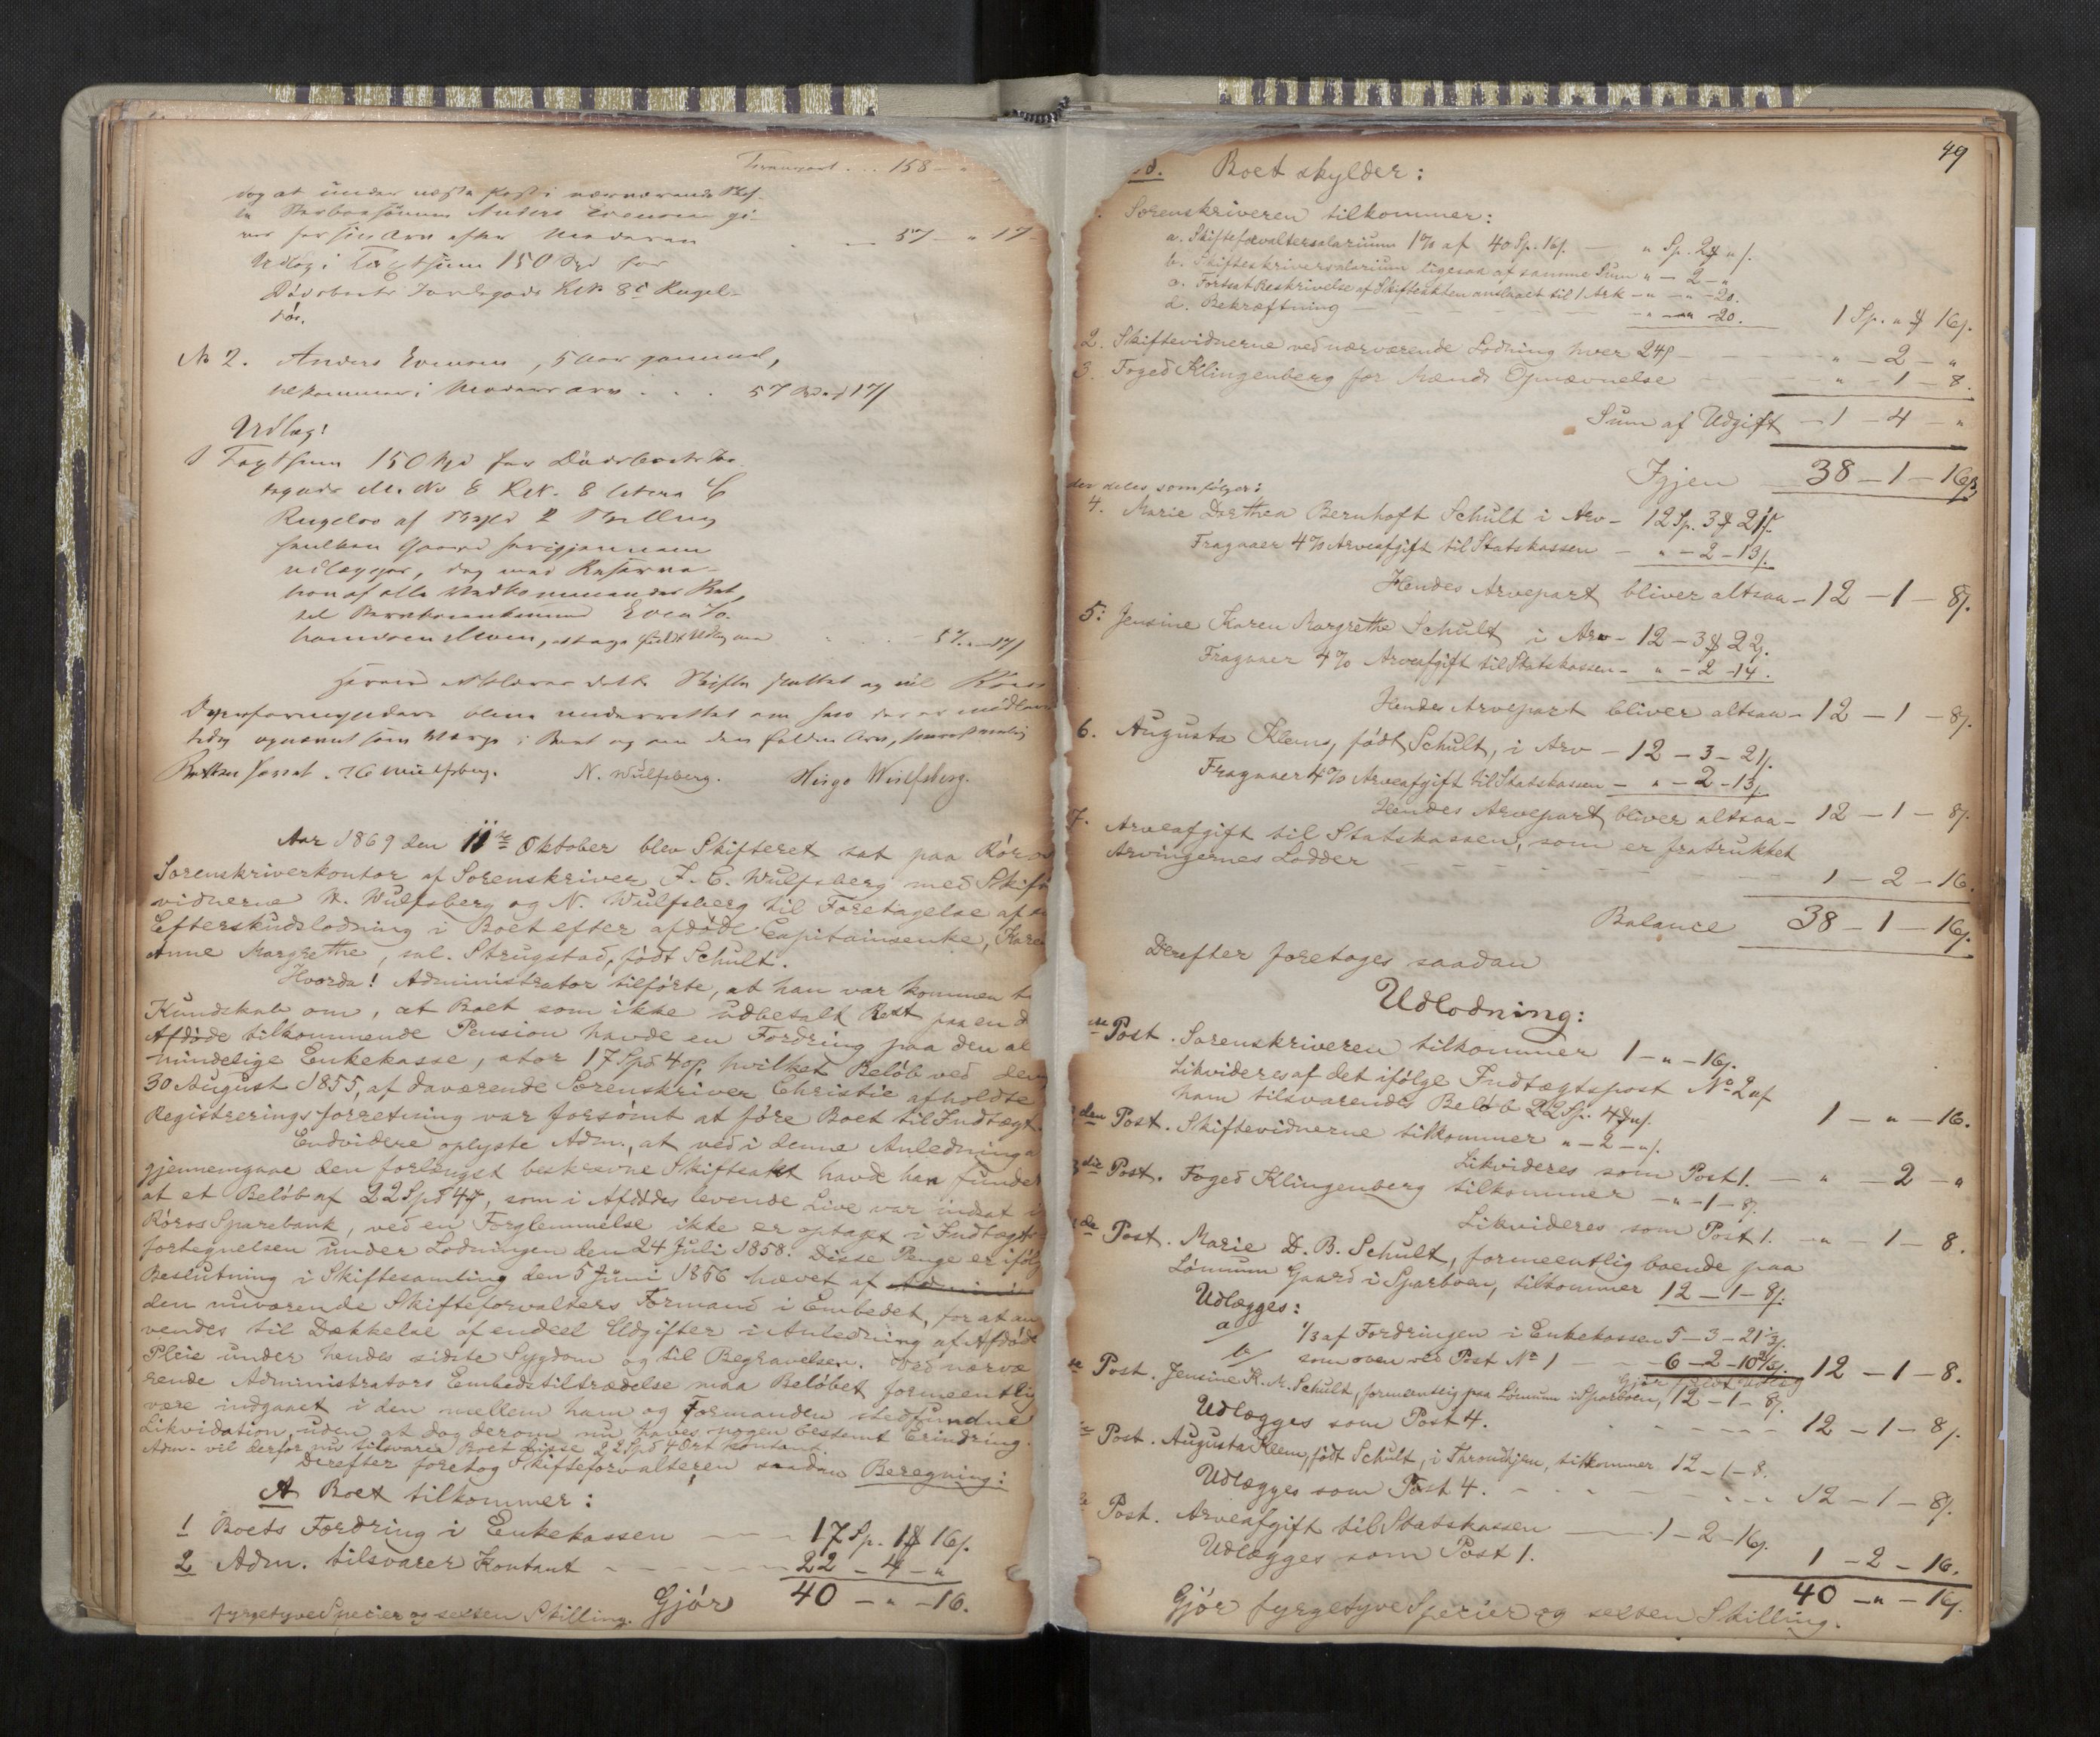 Transport . . . 158 –
dog at under næste Post i nærværende Skif-
te Stervboesønnen Anders Evensen gi-
ves for sin Arv efter Moderen . – 57 – " 17
Udlæg i Taxtsum 150 Spd for
Dødsboets Jordegods L.No 8c Rugel-
døs.
No 2. Anders Evensen, 5 Aar gammel,
tilkommer i Moders Arv . . . 57 Spd " 17/
Udlæg:
I Taxtsum 150 Spd for Dødsboets Jor-
degods M. No 8 L.N. 8 litera C
Rugelos af Skyld 2 Skilling
hvilken Gaard herigjennem
udlægges, dog med Reserva-
tion af alle Vedkommendes Ret,
til
, . . 57 . " 17/
Hermed erklæres dette Skifte sluttet og vil Röros
Overformynderi blive underrettet om hvo der er midler-
tidig opnævnt som Værge i Boet og om den faldne Arv,
Retten hævet. I C Wulfsberg. N. Wulfsberg. Hirgo Wulfsberg.
Aar 1869 den 11te Oktober blev Skifteret sat paa Röros
Sorenskriverkontor af Sorenskriver I. C. Wulfsberg med Skifte
vidnerne H. Wulfsberg og N. Wulfsberg til Foretagelse af
Efterskudslodning i Boet efter afdöde Capitainsenke, Karen
Anne Margrethe, sal. Strugstad, födt Schult.
Hvorda! Administrator tilförte, at han var kommen t
Kundskab om, at Boet som ikke udbetalt Rest paa en d
Afdöde tilkommende Pension havde en Fordring paa den al
mindelige Enkekasse, stor 17 Spd 40/, hvilket Belöb ved den
30 August 1855, af daværende Sorenskriver Christie afholdte
Registreringsforretning var forsömt at före Boet til Indtægt.
Endvidere oplyste Adm., at ved i denne Anledning a
gjennemgaae den forlængst beskrevne Skifteakt havde han funde
at et Belöb af 22 Spd 4 , som i Afdödes levende Live var indsat i
Röros Sparebank, ved en Forglemmelse ikke er optaget i Indtægts
fortegnelsen under Lodningen den 24 Juli 1858. Disse Penge er ifölg
Beslutning i Skiftesamling den 5 Juni 1856 hævet af
den nuværende Skifteforvalters Formand i Embedet, for at an
vendes til Dækkelse af endeel Udgifter i Anledning af Afdöde
Pleie under hendes sidste Sygdom og til Begravelsen. Ved nærvæ
rende Administrators Embedstiltrædelse maa Belöbet formeentlig
være indgaaet i den mellem ham og Formanden stedfundne
Likvidation, uden at dog derom nu haves nogen bestemt Erindring.
Adm. vil derfor nu tilsvare Boet disse 22 Spd 4 Ort kontant.
Derefter foretog Skifteforvalteren saadan Beregning:
A Boet tilkommer:
1 Boets Fordring i Enkekassen – – – 17 Sp. 1 16/.
2 Adm. tilsvarer Kontant – – – – – 22 – 4 – "
fyrgetyve Specier og sexten Skilling. Gjör 40 – " – 16.
49
d. Boet skylder:
Sorenskriveren tilkommer:
a. Skifteforvaltersalarium 1% af 40 Sp. 16/. – " Sp. 2 " /.
b. Skifteskriversalarium ligesaa af samme Sum " – 2 – "
c. Fortsat Beskrivelse af Skifteakten anslaaet til 1 Ark – " – " – 20.
d. Bekræftning – – – – – " – " – 20. 1 Sp. " 16/.
2. Skiftevidnerne ved nærværende Lodning hver 24/ – – – – " – 2 – "
3. Foged Klingenberg for Mænds Opnævnelse – – " – 1 – 8.
Sum af Udgift – 1 – 4 – "
Igjen 38 – 1 – 16/.
der deles som fölger:
4. Marie Dorthea Bernhoft Schult i Arv – 12 Sp. 3 21/.
Fragaaer 4% Arveafgift til Statskassen – " – 2 – 13/.
Hendes Arvepart bliver altsaa – 12 – 1 – 8/.
5: Jensine Karen Margrethe Schult i Arv – 12 – 3 22/.
Fragaaer 4% Arveafgift til Statskassen – " – 2 – 14.
Hendes Arvepart bliver altsaa – 12 – 1 – 8/.
6. Augusta Klem, födt Schult, i Arv – 12 – 3 – 21/.
Fragaaer 4% Arveafgift til Statskassen – " – 2 – 13/.
Hendes Arvepart bliver altsaa – 12 – 1 – 8/.
7. Arveafgift til Statskassen, som er fratrukket
Arvingernes Lodder – – – – – 1 – 2 – 16.
Balance 38 – 1 – 16/.
Derefter foretages saadan
Udlodning:
Post. Sorenskriveren tilkommer 1 – " – 16/.
Likvideres af det ifölge Indtægtspost No 2 af
ham tilsvarende Belöb 22 Sp. 4 " /. 1 – " – 16.
den Post. Skiftevidnerne tilkommer " – 2 – " /.
Likvideres som Post 1. – " – 2 – "
3die Post. Foged Klingenberg tilkommer – " – 1 – 8/.
Likvideres som Post 1. – " – 1 – 8.
de Post. Marie D. B. Schult, formeentlig boende paa
Lömum Gaard i Sparboen, tilkommer 12 – 1 – 8/.
Udlægges:
a/ 1/3 af Fordringen i Enkekassen 5 – 3 – 21 1/3/.
b/ som oven ved Post No 1 – – – 6 – 2 – 10 2/3/. 12 – 1 – 8.
Gjör fuldt Udlæg
te Post. Jensine K. M. Schult, formeentlig paa Lömum i Sparboen, 12 – 1 – 8/.
Udlægges som Post 4. – – – – – 12 – 1 – 8/.
te Post. Augusta Klem, födt Schult, i Throndhjem, tilkommer 12 – 1 – 8.
Udlægges som Post 4. – – – – – 12 – 1 – 8/.
de Post. Arveafgift til Statskassen – 1 – 2 – 16/.
Udlægges som Post 1. 1 – 2 – 16.
40 – " – 16/.
Gjör fyrgetyve Specier og sexten Skilling.